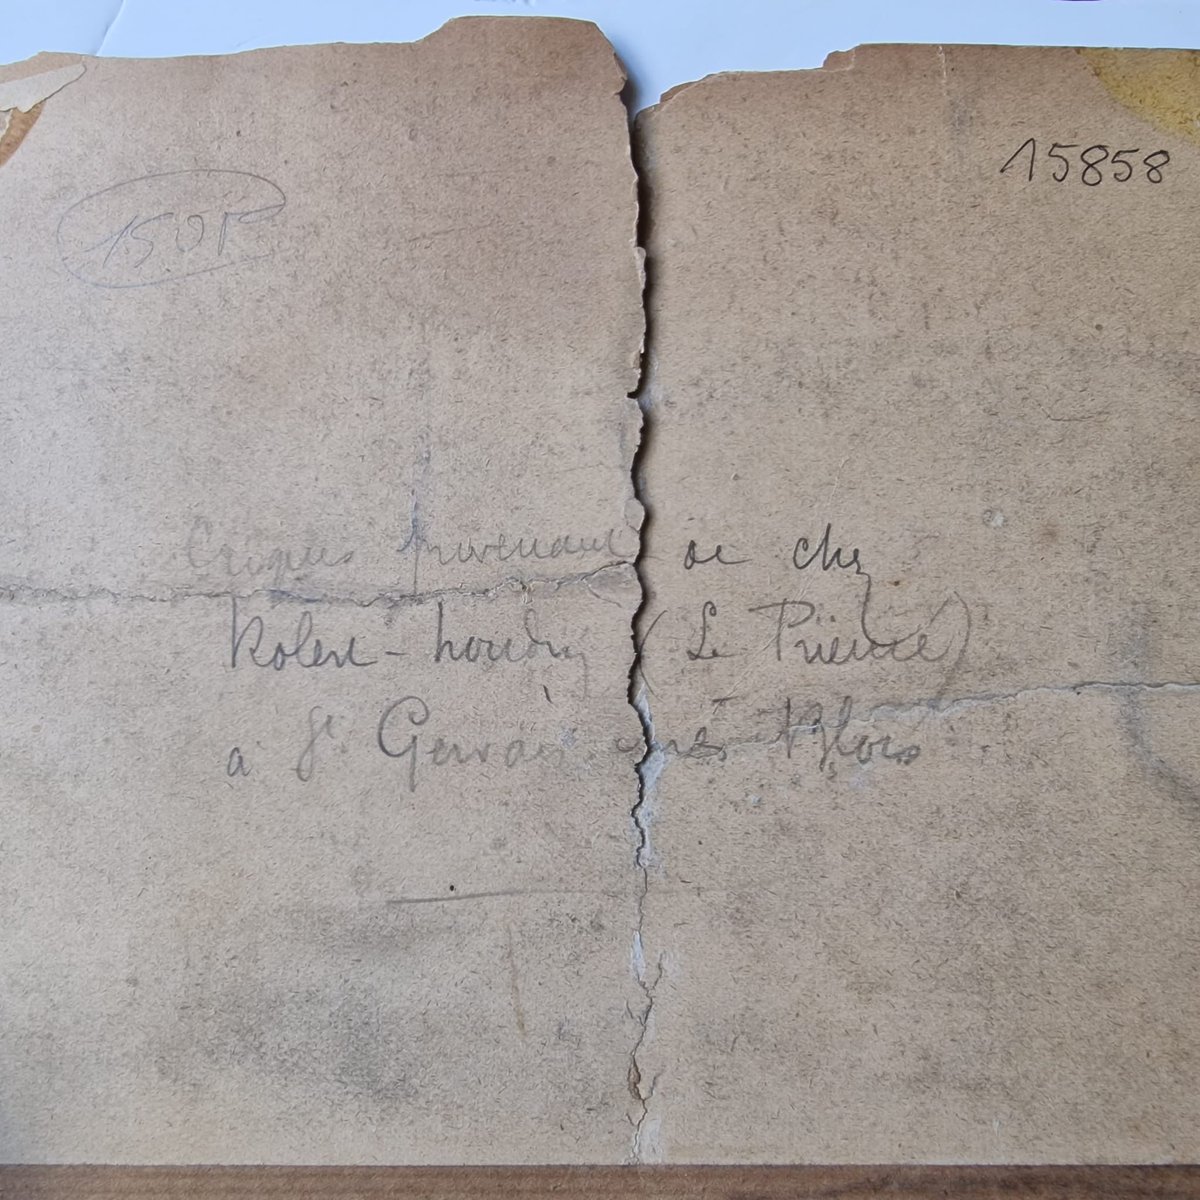 15858
Croquis provenant de chez
Robert-houdin (Le Prieuré)
à St Gervais près Blois